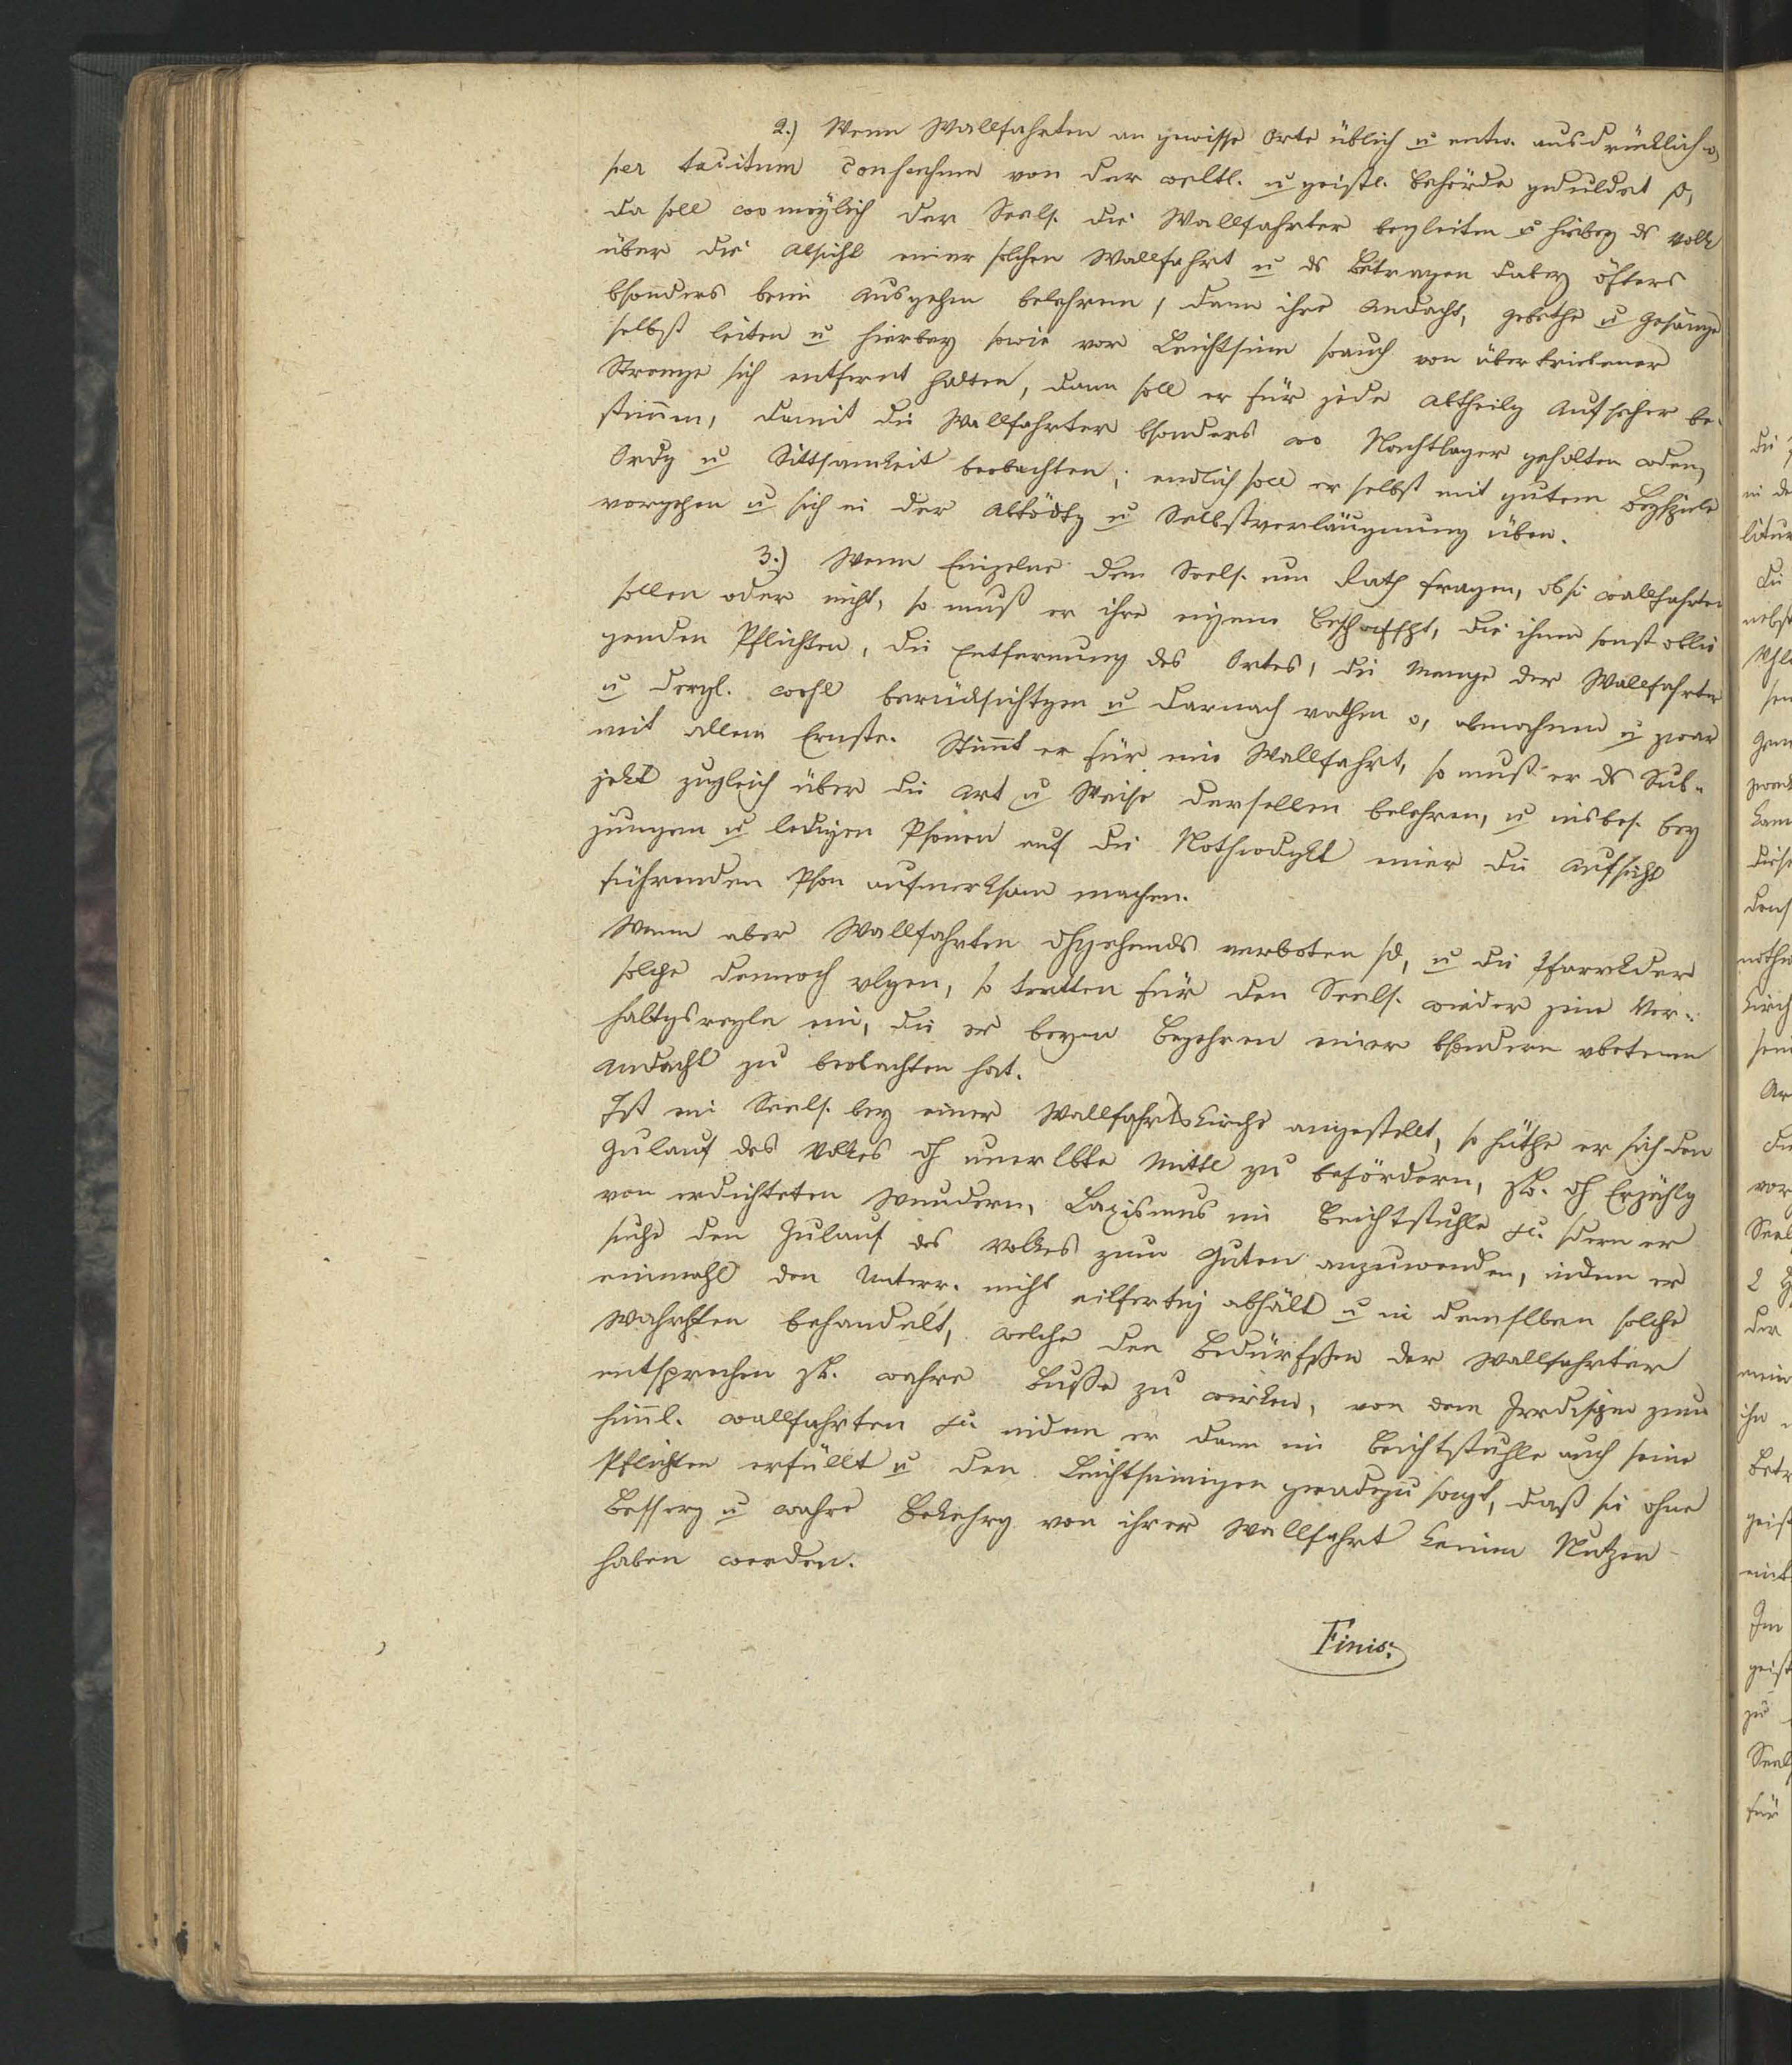 2.) Wenn Wallfahrten an gewisse Orte üblich u entw. ausdrücklich o,
per tacitum consensum von der weltl. u geistl. Behörde geduldet s,
da soll wo möglich der Seels. die Wallfahrter begleiten u hiebey ds Volk
über die Absicht einer solchen Wallfahrt u ds Betragen dabey öfters
bsonders beim Ausgehen belehren, dann ihre Andacht, Gebethe u Gesänge
selbst leiten u hierbey sowie vor Leichtsinn soauch von übertriebener
Strenge sich entfernt halten, dann soll er für jede Abtheilg Aufseher be-
stimmen, damit die Wallfahrter bsonders wo Nachtlager gehalten wden,
Ordg u Sittsamkeit beobachten; endlich soll er selbst mit gutem Beyspiele
vorgehen u sich in der Abtödtg u Selbstverläugnung üben.
3.) Wenn Einzelne den Seels. um Rath fragen, ob si wallfahrten
sollen oder nicht, so muß er ihre eigene Bschaffht, die ihnen sonst oblie
genden Pflichten, die Entfernung des Ortes, die Menge der Wallfahrter
u dergl. wohl berücksichtgen u darnach rathen o, abmahnen u zwar
mit allem Ernste. Stimmt er für eine Wallfahrt, so muß er ds Sub-
jekt zugleich über die Art u Weise derselben belehren, u insbes. bey
jungen u ledigen Psonen auf die Nothwdgkt einer die Aufsicht
führenden Pson aufmerksam machen.
Wenn aber Wallfahrten dhgehends verboten sd, u die Pfarrkder
solche dennoch vlgen, so tretten für den Seels. wieder jene Ver-
haltgsregeln ein, die er beym Begehren einer bsondern vbotenen
Andacht zu beobachten hat.
Ist ein Seels. bey einer Wallfahrtskirche angestellt, so hüthe er sich den
Zulauf des Volkes dh unerlbte Mittl zu befördern, zB. dh Erzählg
von erdichteten Wundern, Laxismus im Beichtstuhle etc. sdern er
suche den Zulauf des Volkes zum Guten anzuwenden, indem er
einmahl den Unterr. nicht eilfertig abhält u in demslben solche
Wahrhten behandelt, welche den Bedürfssen der Wallfahrter
entsprechen zB. wahre Buße zu wirken, von dem Irrdischen zum
himml. wallfahrten etc indem er dann im Beichtstuhle auch seine
Pflichten erfüllt u den Leichtsinnigen geradezu sagt, daß sie ohne
Besserg u wahre Bekehrg von ihrer Wallfahrt keinen Nutzen
haben werden.
Finis.